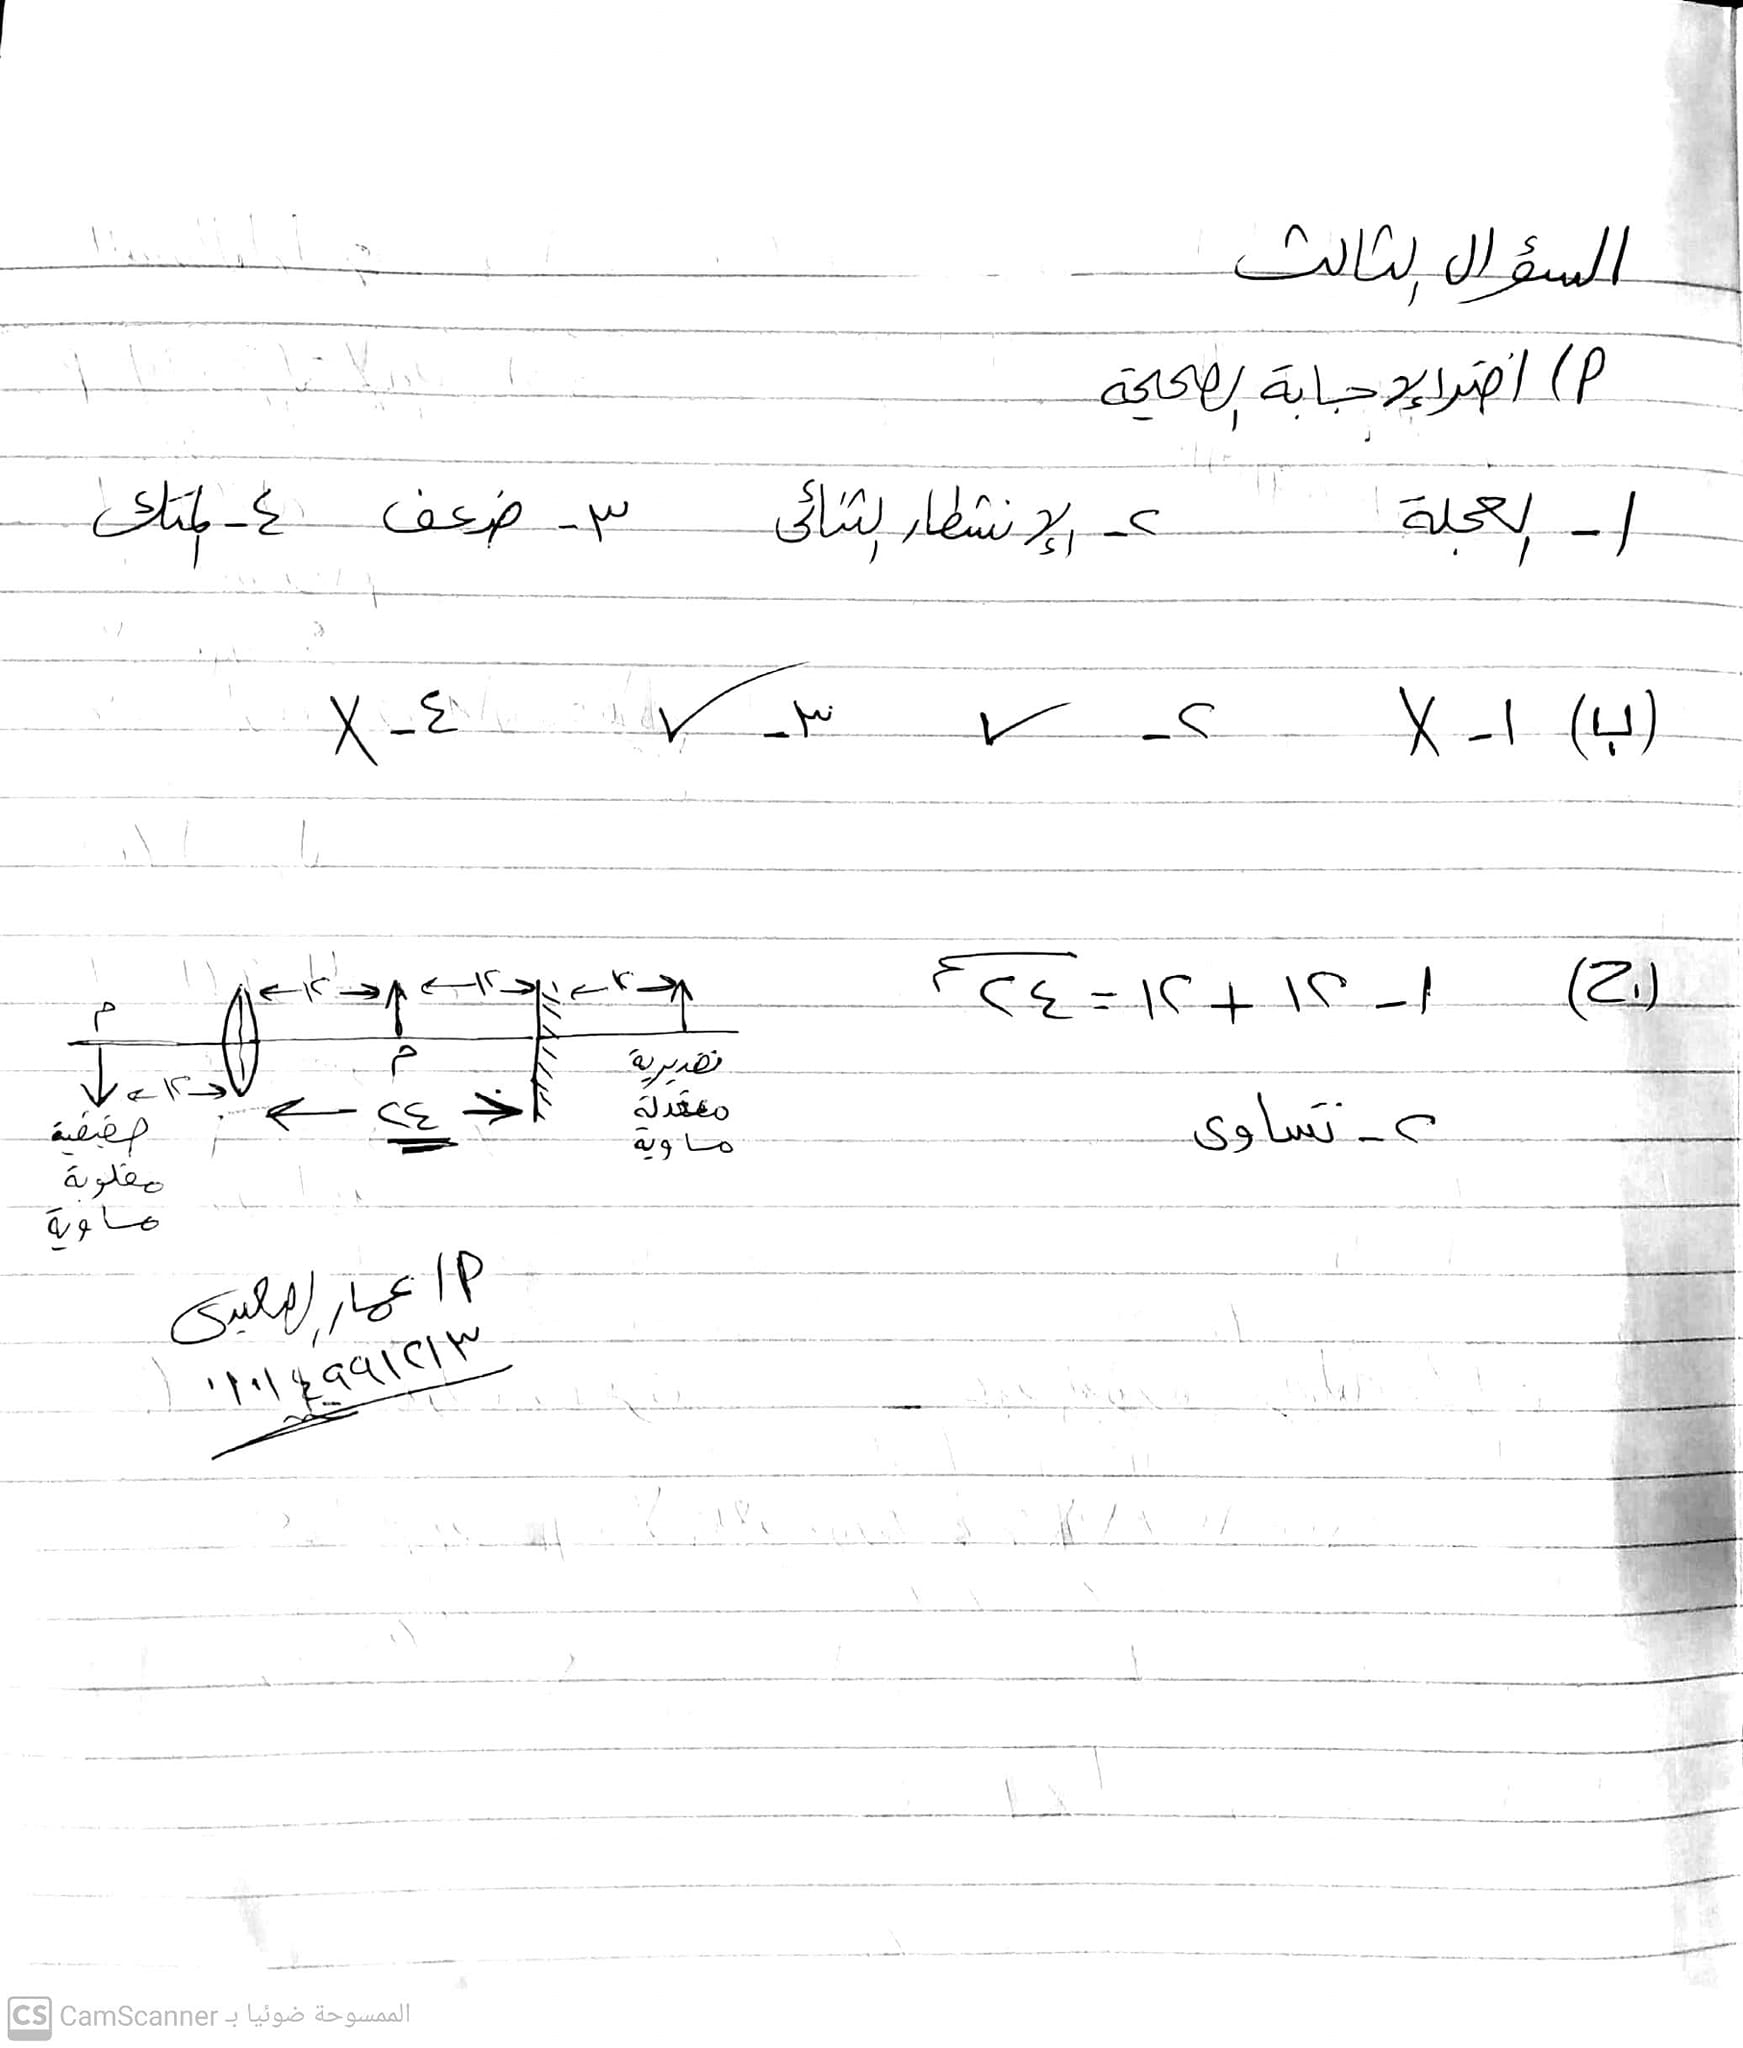 السؤال الثالث
أ) اختر الإجابة الصحيحة
١- العجلة ٢- الإنشطار الثنائى ٣- ضعف ٤- المتك
(ب) ١- X ٢- ✓ ٣- ✓ ٤- X
(ج) ١- ١٢ + ١٢ = ٢٤
٢- تساوى
١٢ ١٢ ١٢
م م
١٢
٢٤
تقديرية
معتدلة
مساوية
حقيقية
مقلوبة
مساوية
أ/ عمار
CS CamScanner الممسوحة ضوئيا بـ